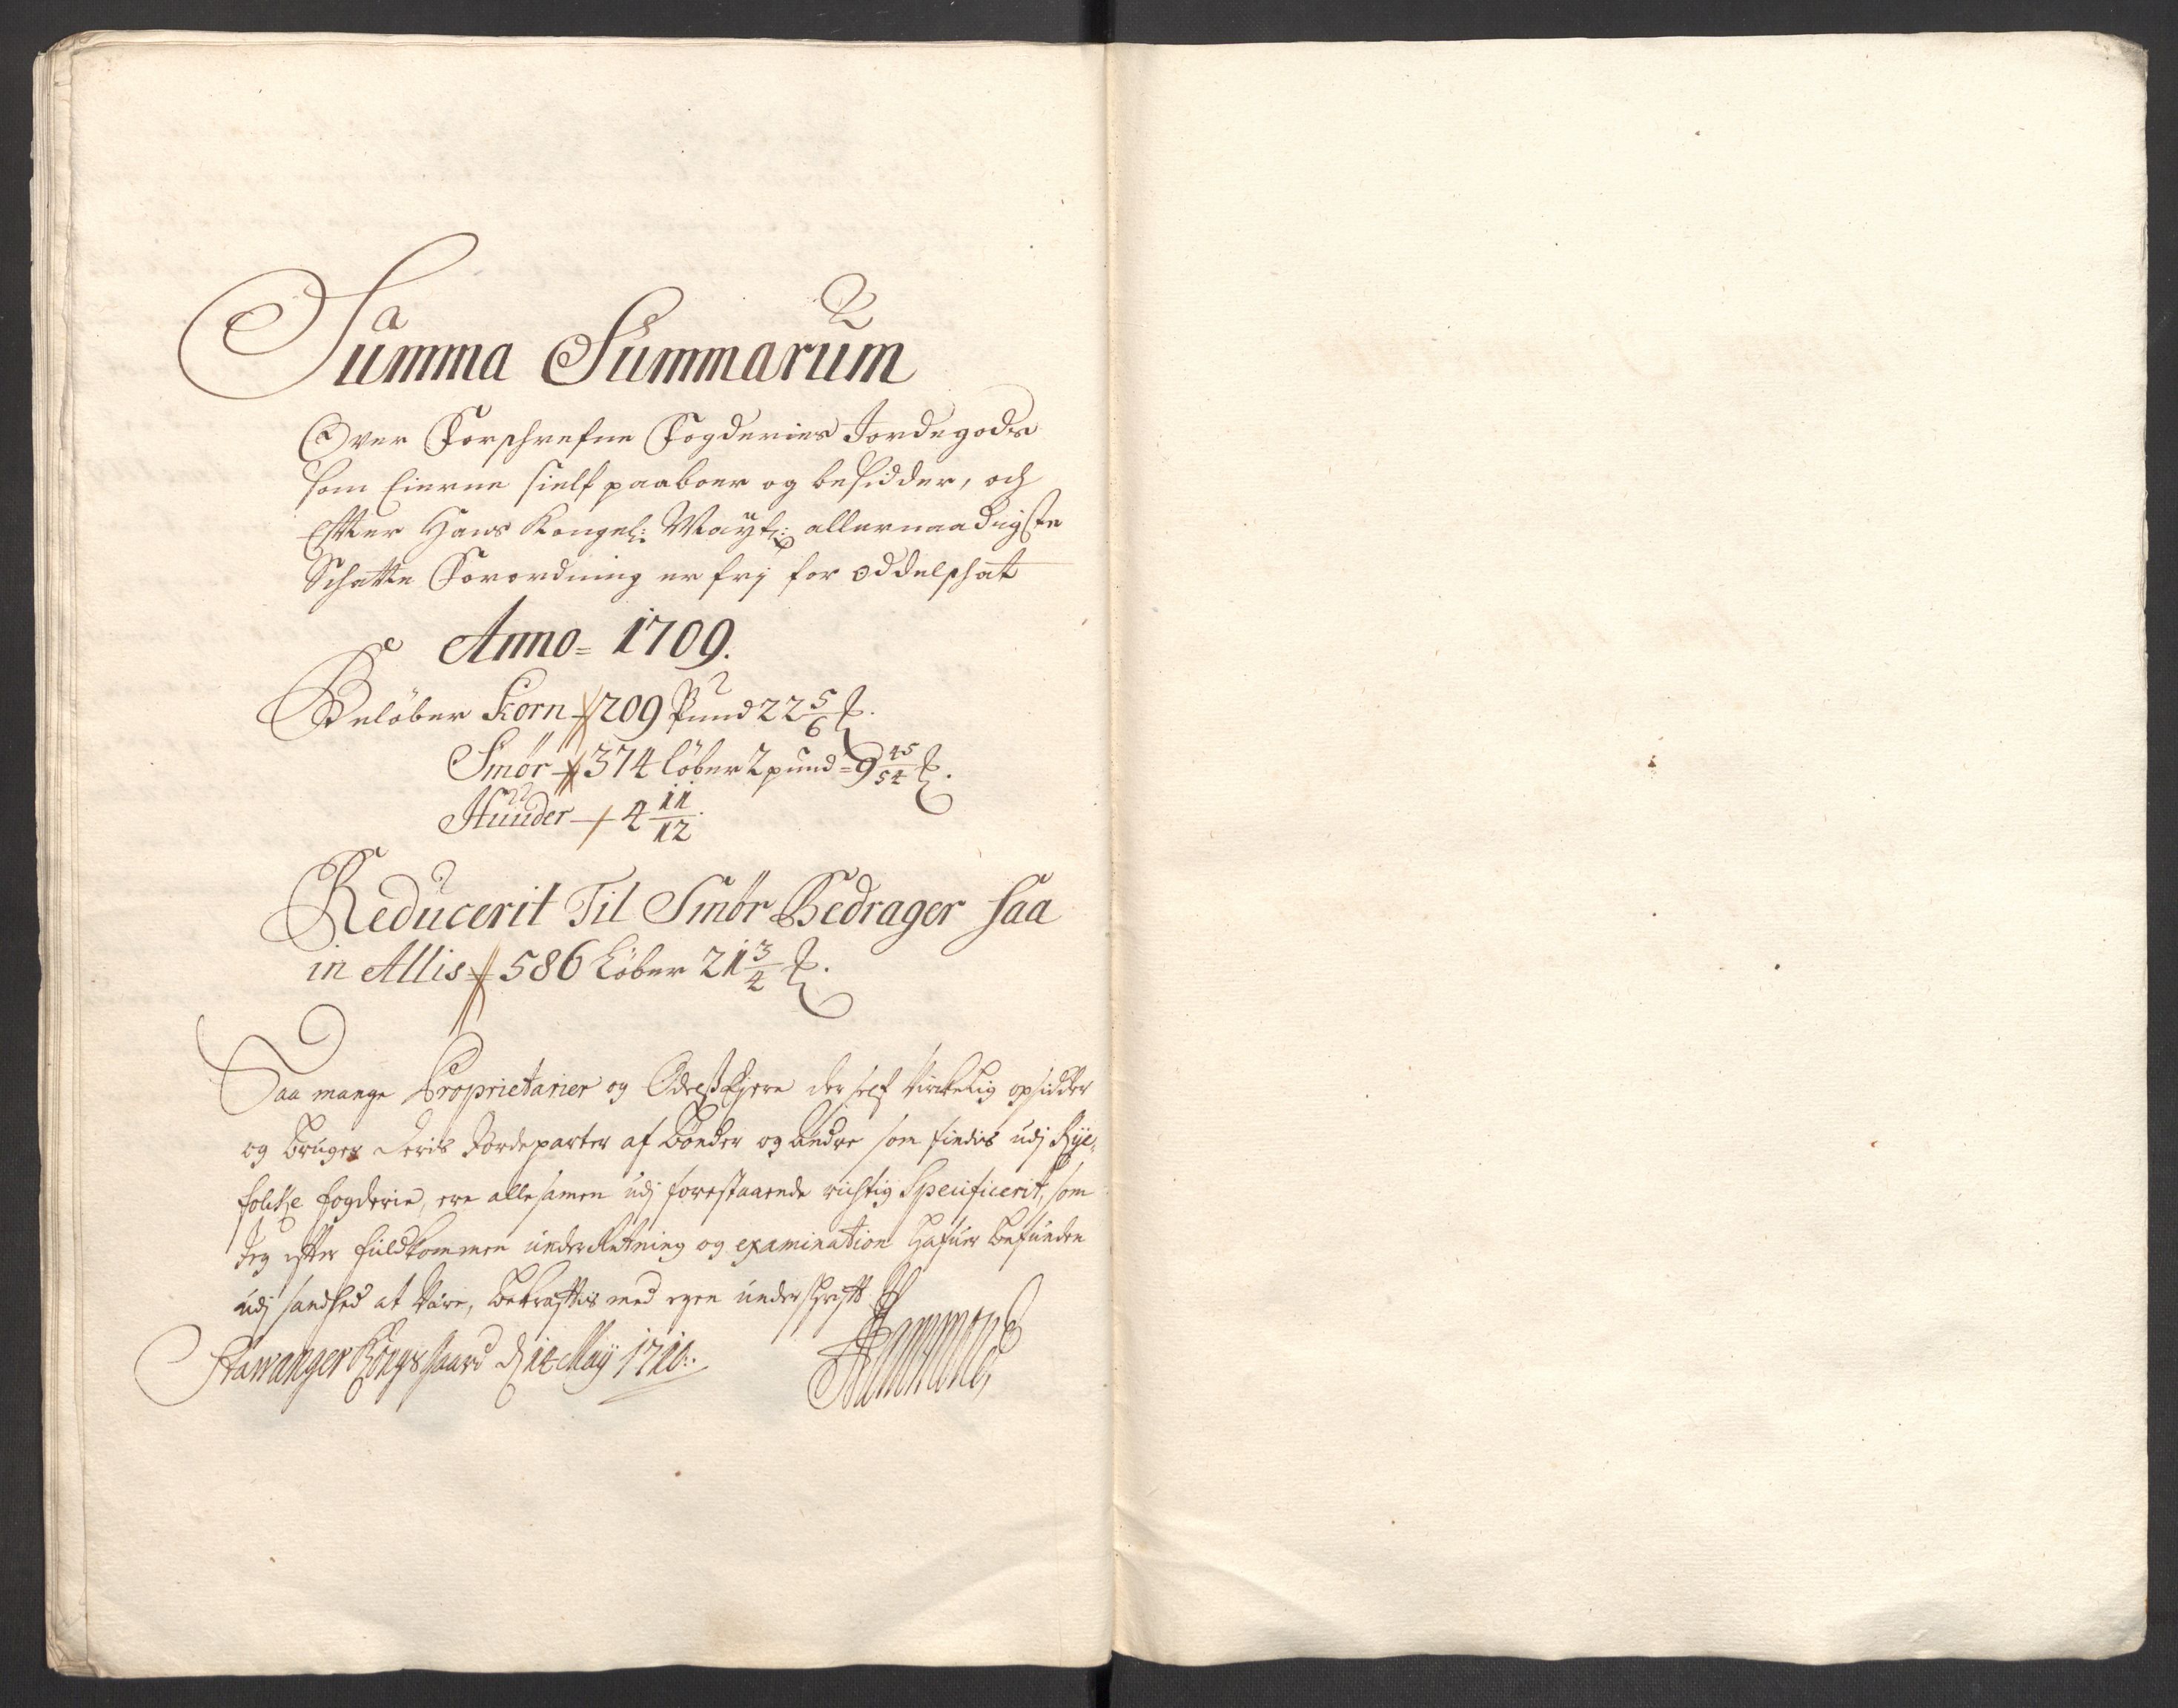 Summa Summarum
Over Forschrefne Fogderies Jordegods
som Eierne sielf paaboer og besidder, och
Efter Hans Kongel: Mayt: allernaadigste
Schatte Forordning er frj for oddelschat
Anno = 1709.
Beløber Korn 209 Pund 22 5/6 ℔.
Smør 374 Løber 2 pund = 9 45/54 ℔.
Huuder 4 11/12.
Reducerit Til Smør Bedrager saa
in Allis 586 Løber 21 3/4 ℔.
Saa mange Proprietarier og Odelß Ejere der self virkelig opsidder
og bruger Deris Jordeparter af Bønder og andre som findis udj Rye-
folckse fogderie, ere allesamen udj forestaaende richtig Specificerit, som
Jeg efter fuldkommen underRetning og examination Hafuer Befunden
udj sandhed at være, Bekræftis med egen underschrift
Stawanger Kongsgaard d 14 Maij 1710.